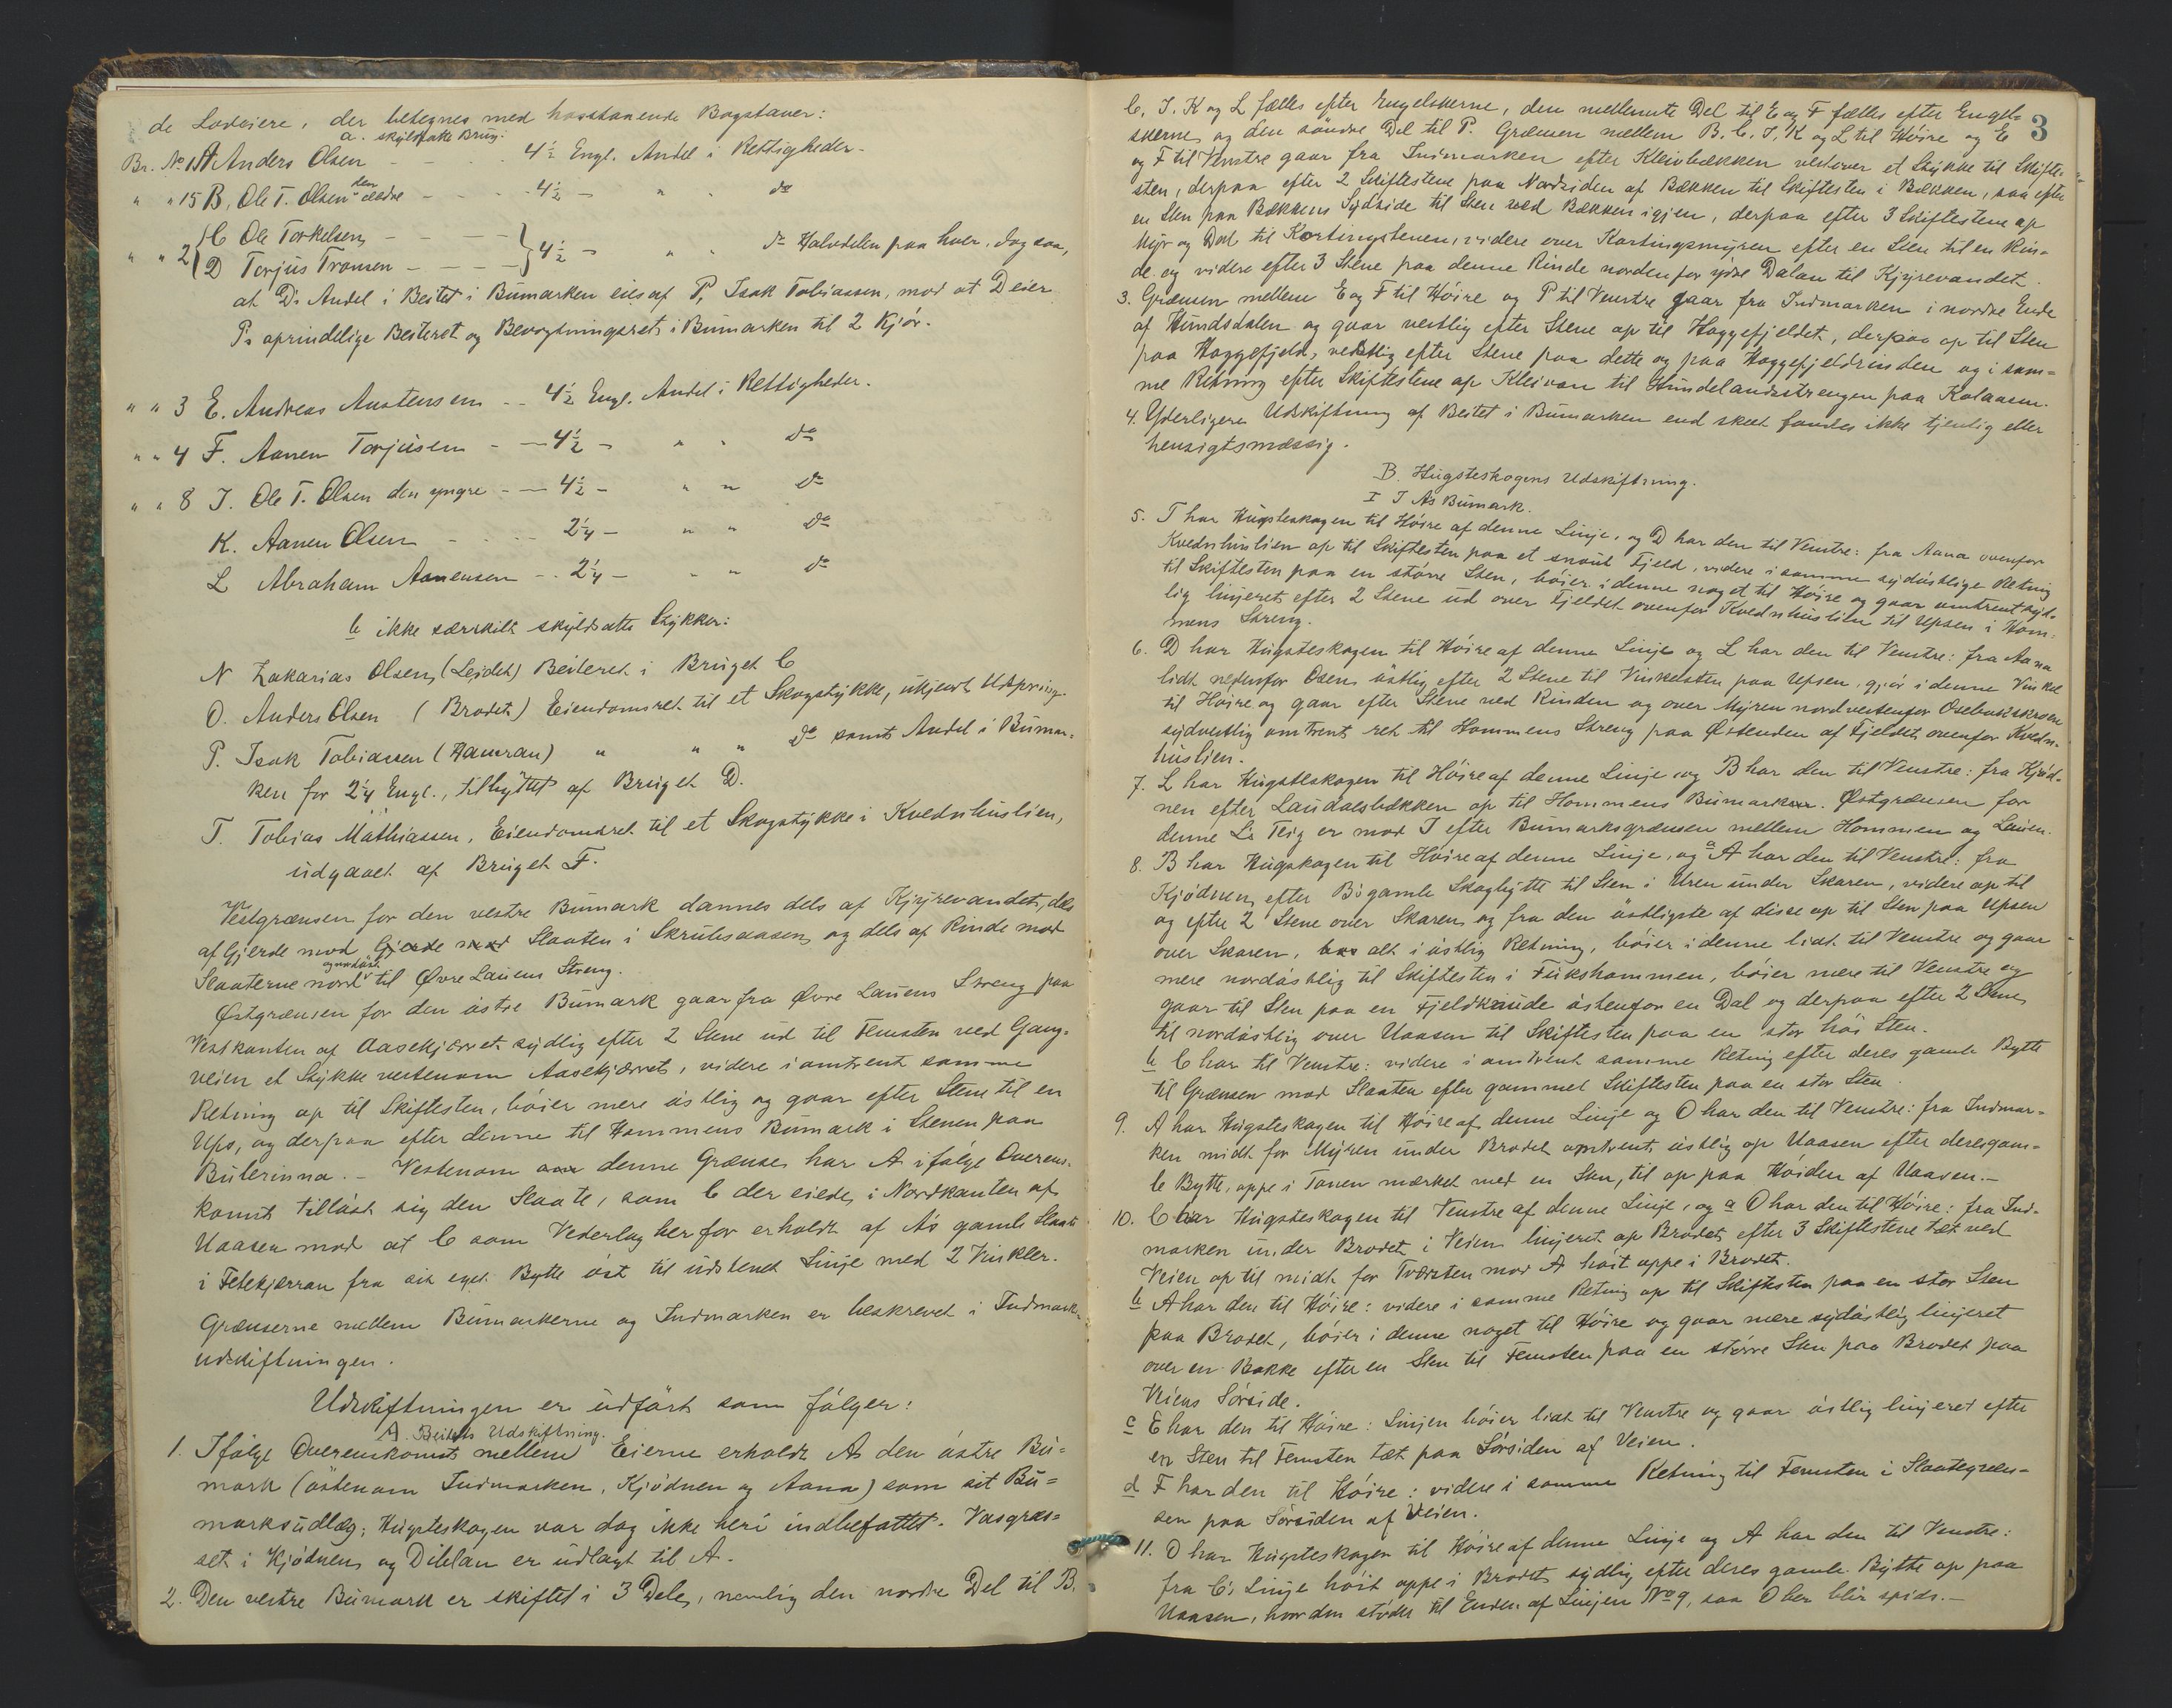 de Lodeiere, der betegnes med hosstaaende Bogstaver:
a. skyldsatte Brug:
Br. No 1 A Anders Olsen - - - 4½ Engl. Andel i Rettigheder.
" " 15 B, Ole T. Olsen den ældre - - - 4½ - " " do
" " 2 { C Ole Torkelsen - - - - } 4½ - " " do Halvdelen paa hver, dog saa,
D Torjus Tronsen - - - -
at D's Andel i Beitet i Bumarken eies af P, Isak Tobiassen, mod at D eier
P.s oprindelige Beiteret og Bevogtningsret i Bumarken til 2 Kjør.
" " 3 E. Andreas Austensen - - 4½ Engl. Andel i Rettigheder.
" " 4 F. Aanen Torjusen - - 4½ - " " do
" " 8 J. Ole T. Olsen den yngre - - 4½ - " " do
K. Aanen Olsen - - - 2¼ - " " do
L Abraham Aanensen - - 2¼ - " " do
b ikke særskilt skyldsatte Stykker:
N Zakarias Olsen, (Leidet) Beiteret i Bruget C
O. Anders Olsen (Brodet) Eiendomsret til et Skogstykke, ukjent Udspring.
P. Isak Tobiassen (Haugan) " " " do samt Andel i Bumar-
ken for 2¼ Engl., tilbyttet af Bruget D.
T. Tobias Mathiassen, Eiendomsret til et Skogstykke i Kvednhuslien,
udgaaet af Bruget F.
Vestgrænsen for den vestre Bumark dannes dels af Kjyrevandet, dels
af Gjerde mod Gjerde mod Slaaten i Skrubsaasen, og dels af Rinde mod
Slaaterne nord og nordøst til Øvre Lauens Streng.
Østgrænsen for den østre Bumark gaar fra Øvre Lauens Streng paa
Vestkanten af Aasekjærret sydlig efter 2 Stene ud til Femsten ved Gang-
veien et Stykke vestenom Aasekjærret, videre i omtrent samme
Retning op til Skiftesten, bøier mere østlig og gaar efter Stene til en
Ups, og derpaa efter denne til Hommens Bumark i Stenen paa
Bulerinna. - Vestenom denne Grænse, har A ifølge Overens-
komst tilløst sig den Slaate, som C der eiede, i Nordkanten af
Uaasen mod at C som Vederlag herfor erholdt af A's gamle Slaat
i Fetekjærran fra sit eget Bytte øst til udstenet Linje med 2 Vinkler.
Grænserne mellem Bumarkerne og Indmarken er beskrevet i Indmark-
udskiftningen.
Udskiftningen er udført som følger:
A. Beitets Udskiftning.
1. Ifølge Overenskomst mellem Eierne erholdt A den østre Bu-
mark (østenom Indmarken, Kjødnen og Aana) som sit Bu-
marksudlæg; Hugsteskogen var dog ikke heri indbefattet. Vasgræs-
set i Kjødnen, og Diklan er udlagt til A.
2. Den vestre Bumark er skiftet i 3 Dele, nemlig den nordre Del til B.
3
C, J. K og L fælles efter Engelskerne, den mellemste Del til E og F fælles efter Engel-
skerne, og den søndre Del til P. Grænsen mellem B. C. J. K og L til Høire og E
og F til Venstre gaar fra Indmarken efter Kleivbækken vestover et Stykke til Skifte-
sten, derpaa efter 2 Skiftestene paa Nordsiden af Bækken til Skiftesten i Bækken, saa efter
en Sten paa Bækkens Sydside til Sten ved Bækken igjen, derpaa efter 3 Skiftestene op
Myr og Dal til Kortingstenen, videre over Kortingsmyren efter en Sten til en Rin-
de og videre efter 3 Stene paa denne Rinde nordenfor ydre Dalan til Kjyrevandet.
3. Grænsen mellem E og F til Høire og P til Venstre gaar fra Indmarken i nordre Ende
af Hundsdalen og gaar vestlig efter Stene op til Hoggefjeldet, derpaa op til Sten
paa Hoggefjeld, vestlig efter Stene paa dette og paa Hoggefjeldrinden og i sam-
me Retning efter Skiftestene op Kleivan til Hundelandsstrengen paa Kolaasen.
4. Yderligere Udskiftning af Beitet i Bumarken end skeet fandtes ikke tjenlig eller
hensigtsmæssig.
B. Hugsteskogens Udskiftning.
I I As Bumark.
5. T har Hugsteskogen til Høire af denne Linje, og D har den til Venstre: fra Aana ovenfor
Kvednhuslien op til Skiftesten paa et snaut Fjeld, videre i samme sydøstlige Retning
til Skiftesten paa en større Sten, bøier i denne noget til Høire og gaar omtrent syd-
lig linjeret efter 2 Stene ud over Fjeldet ovenfor Kvednhuslien til Upsen i Hom-
mens Streng.
6. D har Hugsteskogen til Høire af denne Linje og L har den til Venstre: fra Aana
lidt nedenfor Osen, østlig efter 2 Stene til Vinkelsten paa Upsen, gjør i denne Vinkel
til Høire og gaar efter Stene ved Rinden og over Myren nordvestenfor Osebukskaren
sydvestlig omtrent ret til Hommens Streng paa Østenden af Fjeldet ovenfor Kvedn-
huslien.
7. L har Hugsteskogen til Høire af denne Linje, og B har den til Venstre: fra Kjød-
nen efter Laudalsbækken op til Hommens Bumark. Østgrænsen for
denne L's Teig er mod J efter Bumarksgrænsen mellem Hommen og Lauen.
8. B har Hugskogen til Høire af denne Linje, og a A har den til Venstre: fra
Kjødnen, efter B's gamle Skogbytte til Sten i Uren under Skaren, videre op til
og efter 2 Stene over Skaren, og fra den østligste af disse op til Sten paa Upsen
over Skaren, alt i østlig Retning, bøier i denne lidt til Venstre og gaar
mere nordøstlig til Skiftesten i Fuksħommen, bøier mere til Venstre og
gaar til Sten paa en Fjeldknude østenfor en Dal og derpaa efter 2 Stene,
til nordøstlig over Uaasen til Skiftesten paa en stor høi Sten.
b C har til Venstre: videre i omtrent samme Retning efter deres gamle Bytte
til Grænsen mod Slaaten efter gammel Skiftesten paa en stor Sten.
9. A har Hugsteskogen til Høire af denne Linje og O har den til Venstre: fra Indmar-
ken midt for Myren under Brodet omtrent østlig op Uaasen efter deres gam-
le Bytte, oppe i Tonen mærket med en Sten, til op paa Høiden af Uaasen.-
10. C har Hugsteskogen til Venstre af denne Linje, og a O har den til Høire: fra Ind-
marken under Brodet i Veien linjeret op Brodet efter 3 Skiftestene tæt ved
Veien op til midt for Tværsten mod A høit oppe i Brodet.
b A har den til Høire: videre i samme Retning op til Skiftesten paa en stor Sten
paa Brodet, bøier i denne noget til Høire og gaar mere sydøstlig linjeret
over en Bakke efter en Sten til Femsten paa en større Sten paa Brodet paa
Veiens Sørside.
c E har den til Høire: Linjen bøier lidt til Venstre og gaar østlig linjeret efter
en Sten til Femsten tæt paa Sørsiden af Veien.
d F har den til Høire: videre i samme Retning til Femsten i Slaategræn-
sen paa Sørsiden af Veien.
11. O har Hugsteskogen til Høire af denne Linje og A har den til Venstre:
fra C's Linje høit oppe i Brodet, sydlig efter deres gamle Bytte op paa
Uaasen, hvor den støder til Enden af Linjen No 9, saa O her blir spids.-